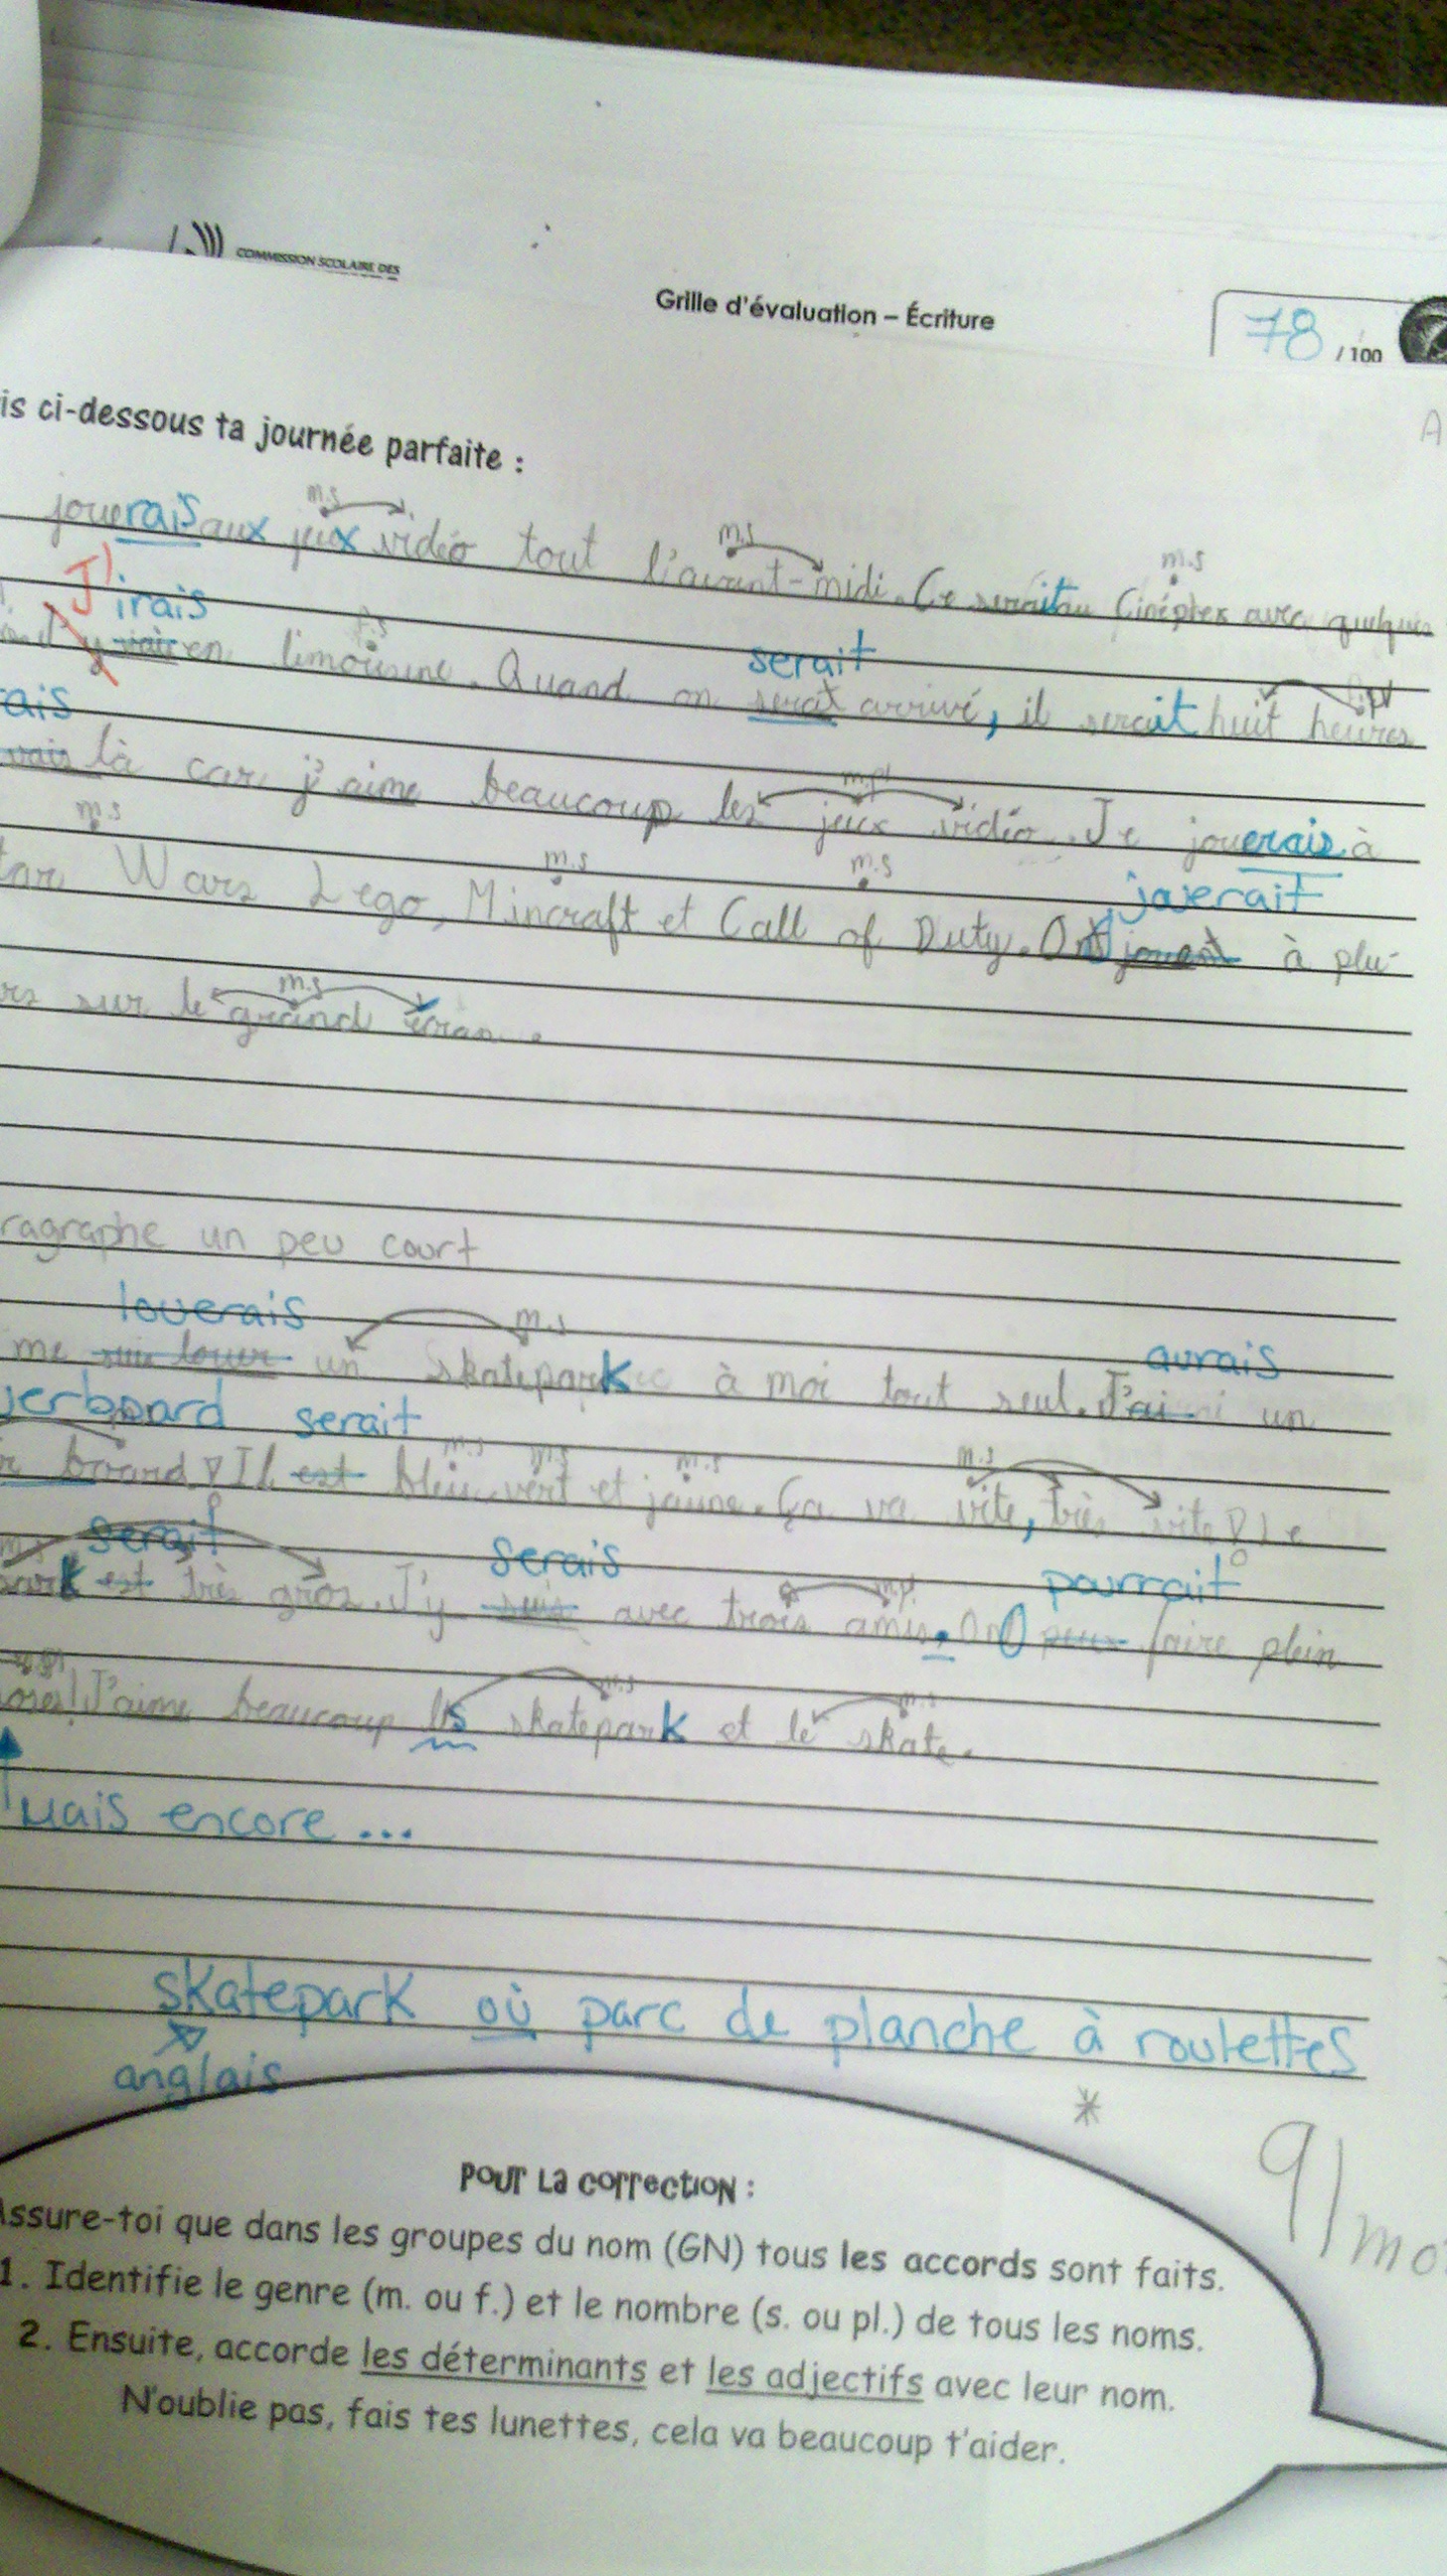 COMMISSION SCOLAIRE DES
Grille d'évaluation – Écriture
78 / 100
A
is ci-dessous ta journée parfaite :
m.s m.s m.s
jouerais aux jeux vidéo tout l'avant-midi. Ce serait au Cinéplex avec quelques
J'irais f.s serait
en limousine. Quand on serat arrivé, il serait huit heures
ais m.pl
vais là car j'aime beaucoup les jeux vidéo. Je jouerais à
m.s m.s m.s jouerait
tar Wars Lego, Mincraft et Call of Duty. On à plu-
m.s
rs sur le grand écran.
ragraphe un peu court
louerais m.s aurais
me suis louer un skatepark à moi tout seul. J'ai un
erboard serait m.s m.s m.s m.s
r board! Il est bleu, vert et jaune. Ça va vite, très vite! Le
serait serais m.pl pourrait
park est très gros. J'y suis avec trois amis. On peux faire plein
m.s m.s
oses! J'aime beaucoup les skatepark et le skate.
Mais encore...
skatepark où parc de planche à roulettes
anglais
*
9/mo
Pour la correction :
Assure-toi que dans les groupes du nom (GN) tous les accords sont faits.
1. Identifie le genre (m. ou f.) et le nombre (s. ou pl.) de tous les noms.
2. Ensuite, accorde les déterminants et les adjectifs avec leur nom.
N'oublie pas, fais tes lunettes, cela va beaucoup t'aider.